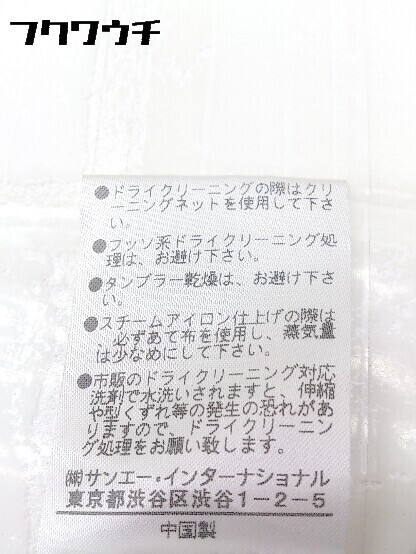 フクワウチ
●ドライクリーニングの際はクリ
ーニングネットを使用して下さ
い。
●フッソ系ドライクリーニング処
理は、お避け下さい。
●タンブラー乾燥は、お避け下さ
い。
●スチームアイロン仕上げの際は
、必ずあて布を使用し、蒸気量
は少なめにして下さい。
●市販のドライクリーニング対応
洗剤で水洗いされますと、伸縮
や型くずれ等の発生の恐れがあ
りますので、ドライクリーニン
グ処理をお願い致します。
㈱サンエー・インターナショナル
東京都渋谷区渋谷1-2-5
中国製